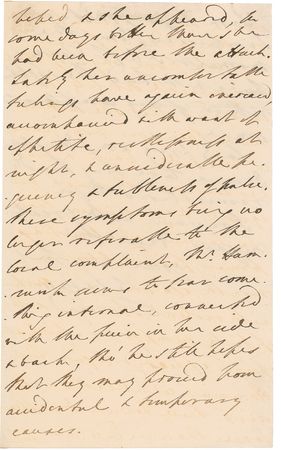 helped & she appeared, for
some days better than she
had been before the attack.
Lately her uncomfortable
feelings have again increased,
accompanied with want of
appetite, restlessness at
night, & considerable fre-
quency & feebleness of pulse.
These symptoms being no
longer referable to the
local complaint, Mr
seems to fear some-
thing internal, connected
with the pain in her side
& back, tho' he still hopes
that they may proceed from
accidental & temporary
causes.